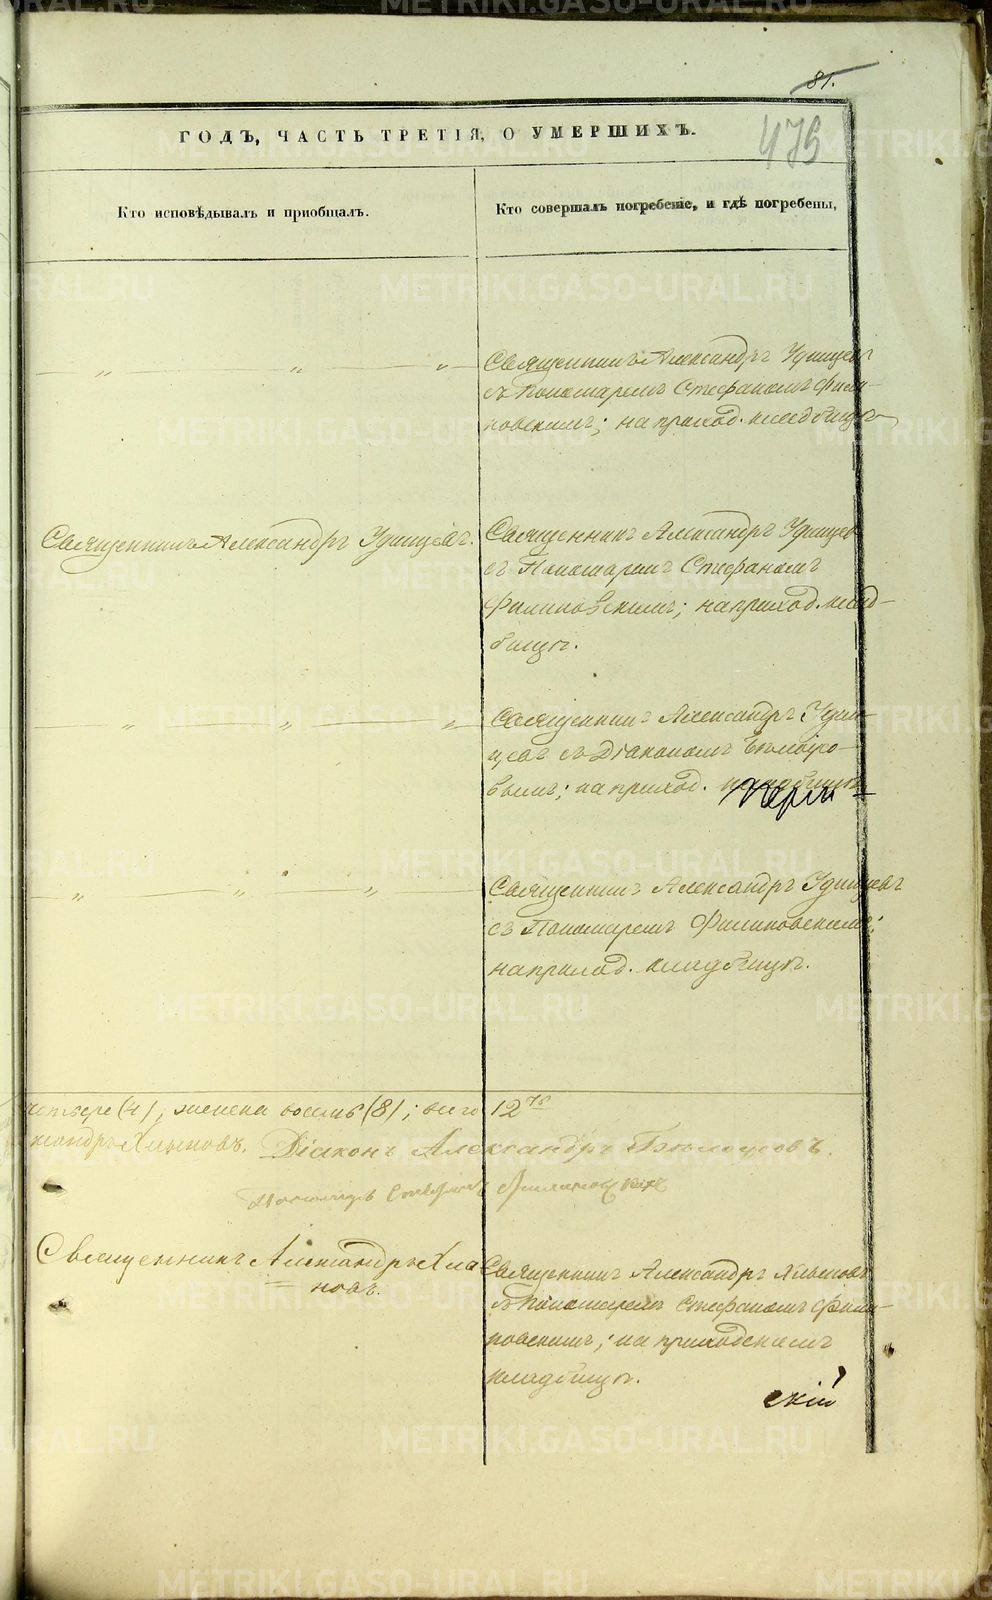 81.
475
ГОДЪ, ЧАСТЬ ТРЕТІЯ, О УМЕРШИХЪ.
Кто исповѣдывалъ и пріобщалъ.
Кто совершалъ погребеніе, и гдѣ погребены,
Священникъ Александръ Удинцевъ
съ Пономаремъ Стефаномъ Фили-
повскимъ; на приход. кладбищѣ
Священникъ Александръ Удинцевъ.
Священникъ Александръ Удинцев
съ Пономаремъ Стефаномъ
Филиповскимъ; на приход. клад-
бищѣ.
Священникъ Александръ Удин-
цевъ съ Діакономъ Бѣлоусо-
вымъ; на приход. кладбищѣ
Священникъ Александръ Удинцевъ
съ Пономаремъ Филиповскимъ;
на приход. кладбищѣ.
четыре (4), женска восемь (8); всего 12ть
Діаконъ Александръ Бѣлоусовъ.
Пономарь Стефанъ Филиповскій
Священникъ Александръ Хлы
новъ.
Священникъ Александръ Хлыновъ
съ Пономаремъ Стефаномъ Фили-
повскимъ; на приходскомъ
кладбищѣ.
скій
METRIKI.GASO-URAL.RU